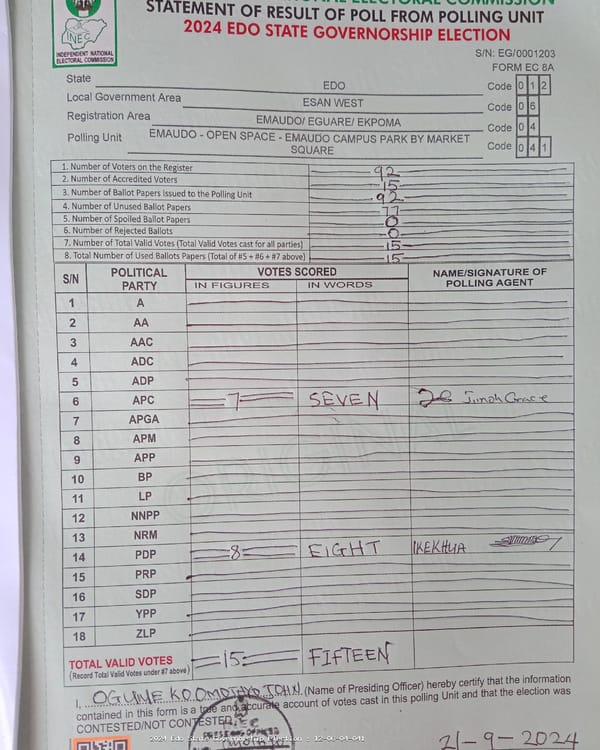 STATEMENT OF RESULT OF POLL FROM POLLING UNIT
2024 EDO STATE GOVERNORSHIP ELECTION
INEC
INDEPENDENT NATIONAL
ELECTORAL COMMISSION
S/N: EG/0001203
FORM EC 8A
State EDO Code 0 1 2
Local Government Area ESAN WEST Code 0 6
Registration Area EMAUDO/ EGUARE/ EKPOMA Code 0 4
Polling Unit EMAUDO - OPEN SPACE - EMAUDO CAMPUS PARK BY MARKET SQUARE Code 0 4 1
1. Number of Voters on the Register 92
2. Number of Accredited Voters 15
3. Number of Ballot Papers Issued to the Polling Unit 92
4. Number of Unused Ballot Papers 77
5. Number of Spoiled Ballot Papers 0
6. Number of Rejected Ballots 0
7. Number of Total Valid Votes (Total Valid Votes cast for all parties) 15
8. Total Number of Used Ballots Papers (Total of #5 + #6 + #7 above) 15
S/N POLITICAL PARTY VOTES SCORED NAME/SIGNATURE OF POLLING AGENT
IN FIGURES IN WORDS
1 A
2 AA
3 AAC
4 ADC
5 ADP
6 APC 7 SEVEN Jimoh Grace
7 APGA
8 APM
9 APP
10 BP
11 LP
12 NNPP
13 NRM
14 PDP 8 EIGHT IKEKHUA
15 PRP
16 SDP
17 YPP
18 ZLP
TOTAL VALID VOTES 15 FIFTEEN
(Record Total Valid Votes under #7 above)
I, JOHN (Name of Presiding Officer) hereby certify that the information
contained in this form is a true and accurate account of votes cast in this polling Unit and that the election was
CONTESTED/NOT CONTESTED.
21-9-2024